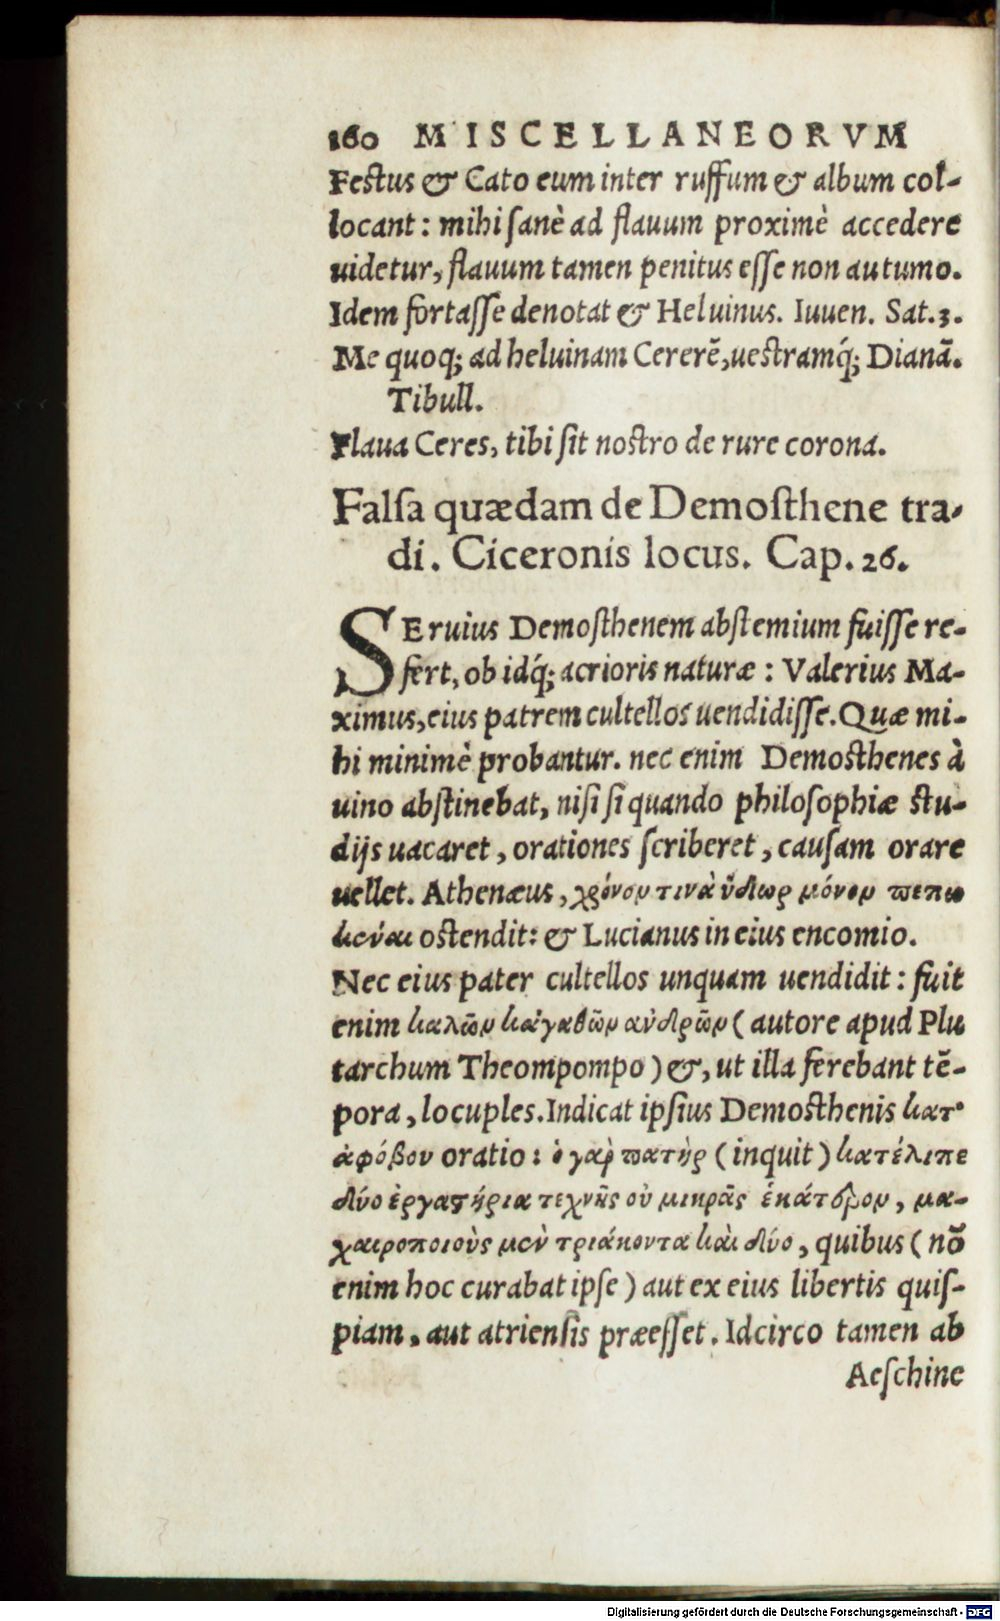 160 MISCELLANEORVM
Festus & Cato eum inter ruffum & album col-
locant: mihi sanè ad flauum proximè accedere
uidetur, flauum tamen penitus esse non autumo.
Idem fortasse denotat & Heluinus. Iuuen. Sat. 3.
Me quoq; ad heluinam Cererē, uestramq́; Dianā.
Tibull.
Flaua Ceres, tibi sit nostro de rure corona.
Falsa quædam de Demosthene tra-
di. Ciceronis locus. Cap. 26.
SEruius Demosthenem abstemium fuisse re-
fert, ob idq́; acrioris naturæ: Valerius Ma-
ximus, eius patrem cultellos uendidisse. Quæ mi-
hi minimè probantur. nec enim Demosthenes à
uino abstinebat, nisi si quando philosophiæ stu-
dijs uacaret, orationes scriberet, causam orare
uellet. Athenæus, χρόνον τινὰ ὕδωρ μόνον πεπω
κέναι ostendit: & Lucianus in eius encomio.
Nec eius pater cultellos unquam uendidit: fuit
enim καλῶν κἀγαθῶν ἀνδρῶν (autore apud Plu
tarchum Theompompo) &, ut illa ferebant tē-
pora, locuples. Indicat ipsius Demosthenis κατ'
ἀφόβου oratio: ὁ γαρ̀ πατὴρ (inquit) κατέλιπε
δύο ἐργαστήρια τεχνῆς οὐ μικρᾶς ἑκάτερον, μα-
χαιροποιοὺς μὲν τριάκοντα καὶ δύο, quibus (nō
enim hoc curabat ipse) aut ex eius libertis quis-
piam, aut atriensis præesset. Idcirco tamen ab
Aeschine
Digitalisierung gefördert durch die Deutsche Forschungsgemeinschaft - DFG